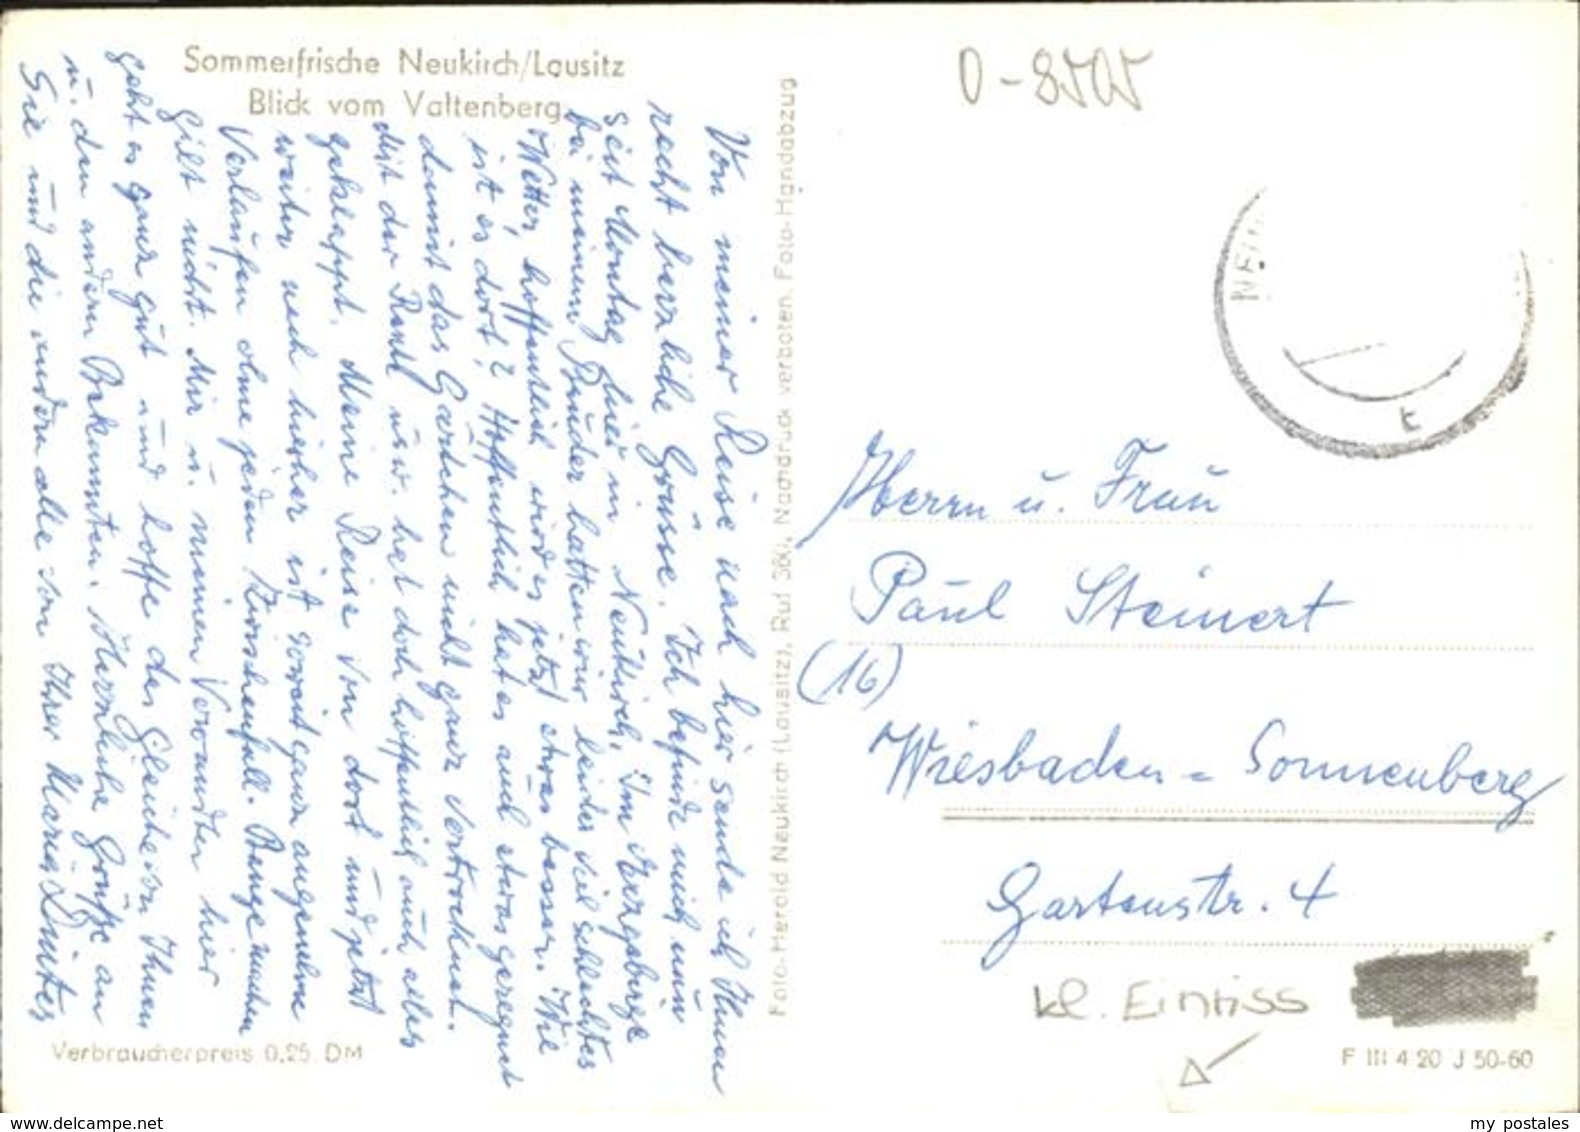 Sommerfrische Neukirch/Lausitz
Blick vom Valtenberg
Von meiner Reise nach hier sende ich Ihnen
recht herzliche Grüsse. Ich befinde mich nun
seit Montag hier in Neukirch. Im Erzgebirge
bei meinem Bruder hatten wir leider viel schlechtes
Wetter, hoffentlich wird es jetzt etwas besser. Wie
ist es dort? Hoffentlich hat es auch etwas geregnet
damit das Gärtchen nicht ganz vertrocknet.
Mit der Rente usw. hat doch hoffentlich auch alles
geklappt. Meine Reise von dort und jetzt
weiter nach hierher ist soweit ganz angenehm
Verlaufen ohne jeden Zwischenfall. Bange machen
gilt nicht. Mir u. meinen Verwandten hier
geht es ganz gut und hoffe das Gleiche von Ihnen
u. den andern Bekannten. Herzliche Grüße an
Sie und die andern alle von Ihrer Maria
Foto-Herold Neukirch (Lausitz), Ruf 360, Nachdruck verboten. Foto-Handabzug
Verbraucherpreis 0,25 DM
0-8505
NEU
t
Herrn u. Frau
Paul Steinert
(16)
Wiesbaden = Sonnenberg
Gartenstr. 4
kl. Einriss
F III 4 20 J 50-60
www.delcampe.net
my_postales